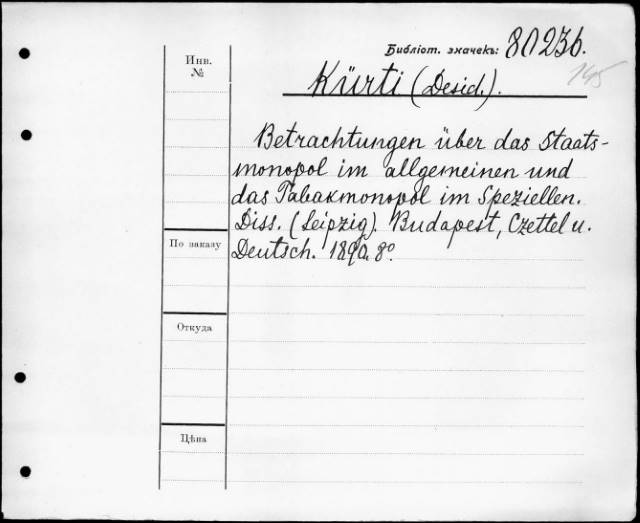 Библіот. значекъ: 80236.
145
Инв.
№
Kürti (Desid.).
Betrachtungen über das Staats-
monopol im allgemeinen und
das Tabakmonopol im Speziellen.
Diss. (Leipzig). Budapest, Czettel u.
Deutsch. 1890. 8º.
По заказу
Откуда
Цѣна